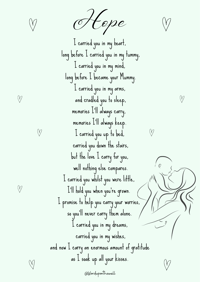 Hope
I carried you in my heart,
long before I carried you in my tummy,
I carried you in my mind,
long before I became your Mummy.
I carried you in my arms,
and cradled you to sleep,
memories I'll always carry,
memories I'll always keep.
I carried you up to bed,
carried you down the stairs,
but the love I carry for you,
well nothing else compares.
I carried you whilst you were little,
I'll hold you when you're grown.
I promise to help you carry your worries,
so you'll never carry them alone.
I carried you in my dreams,
carried you in my wishes,
and now I carry an enormous amount of gratitude
as I soak up all your kisses.